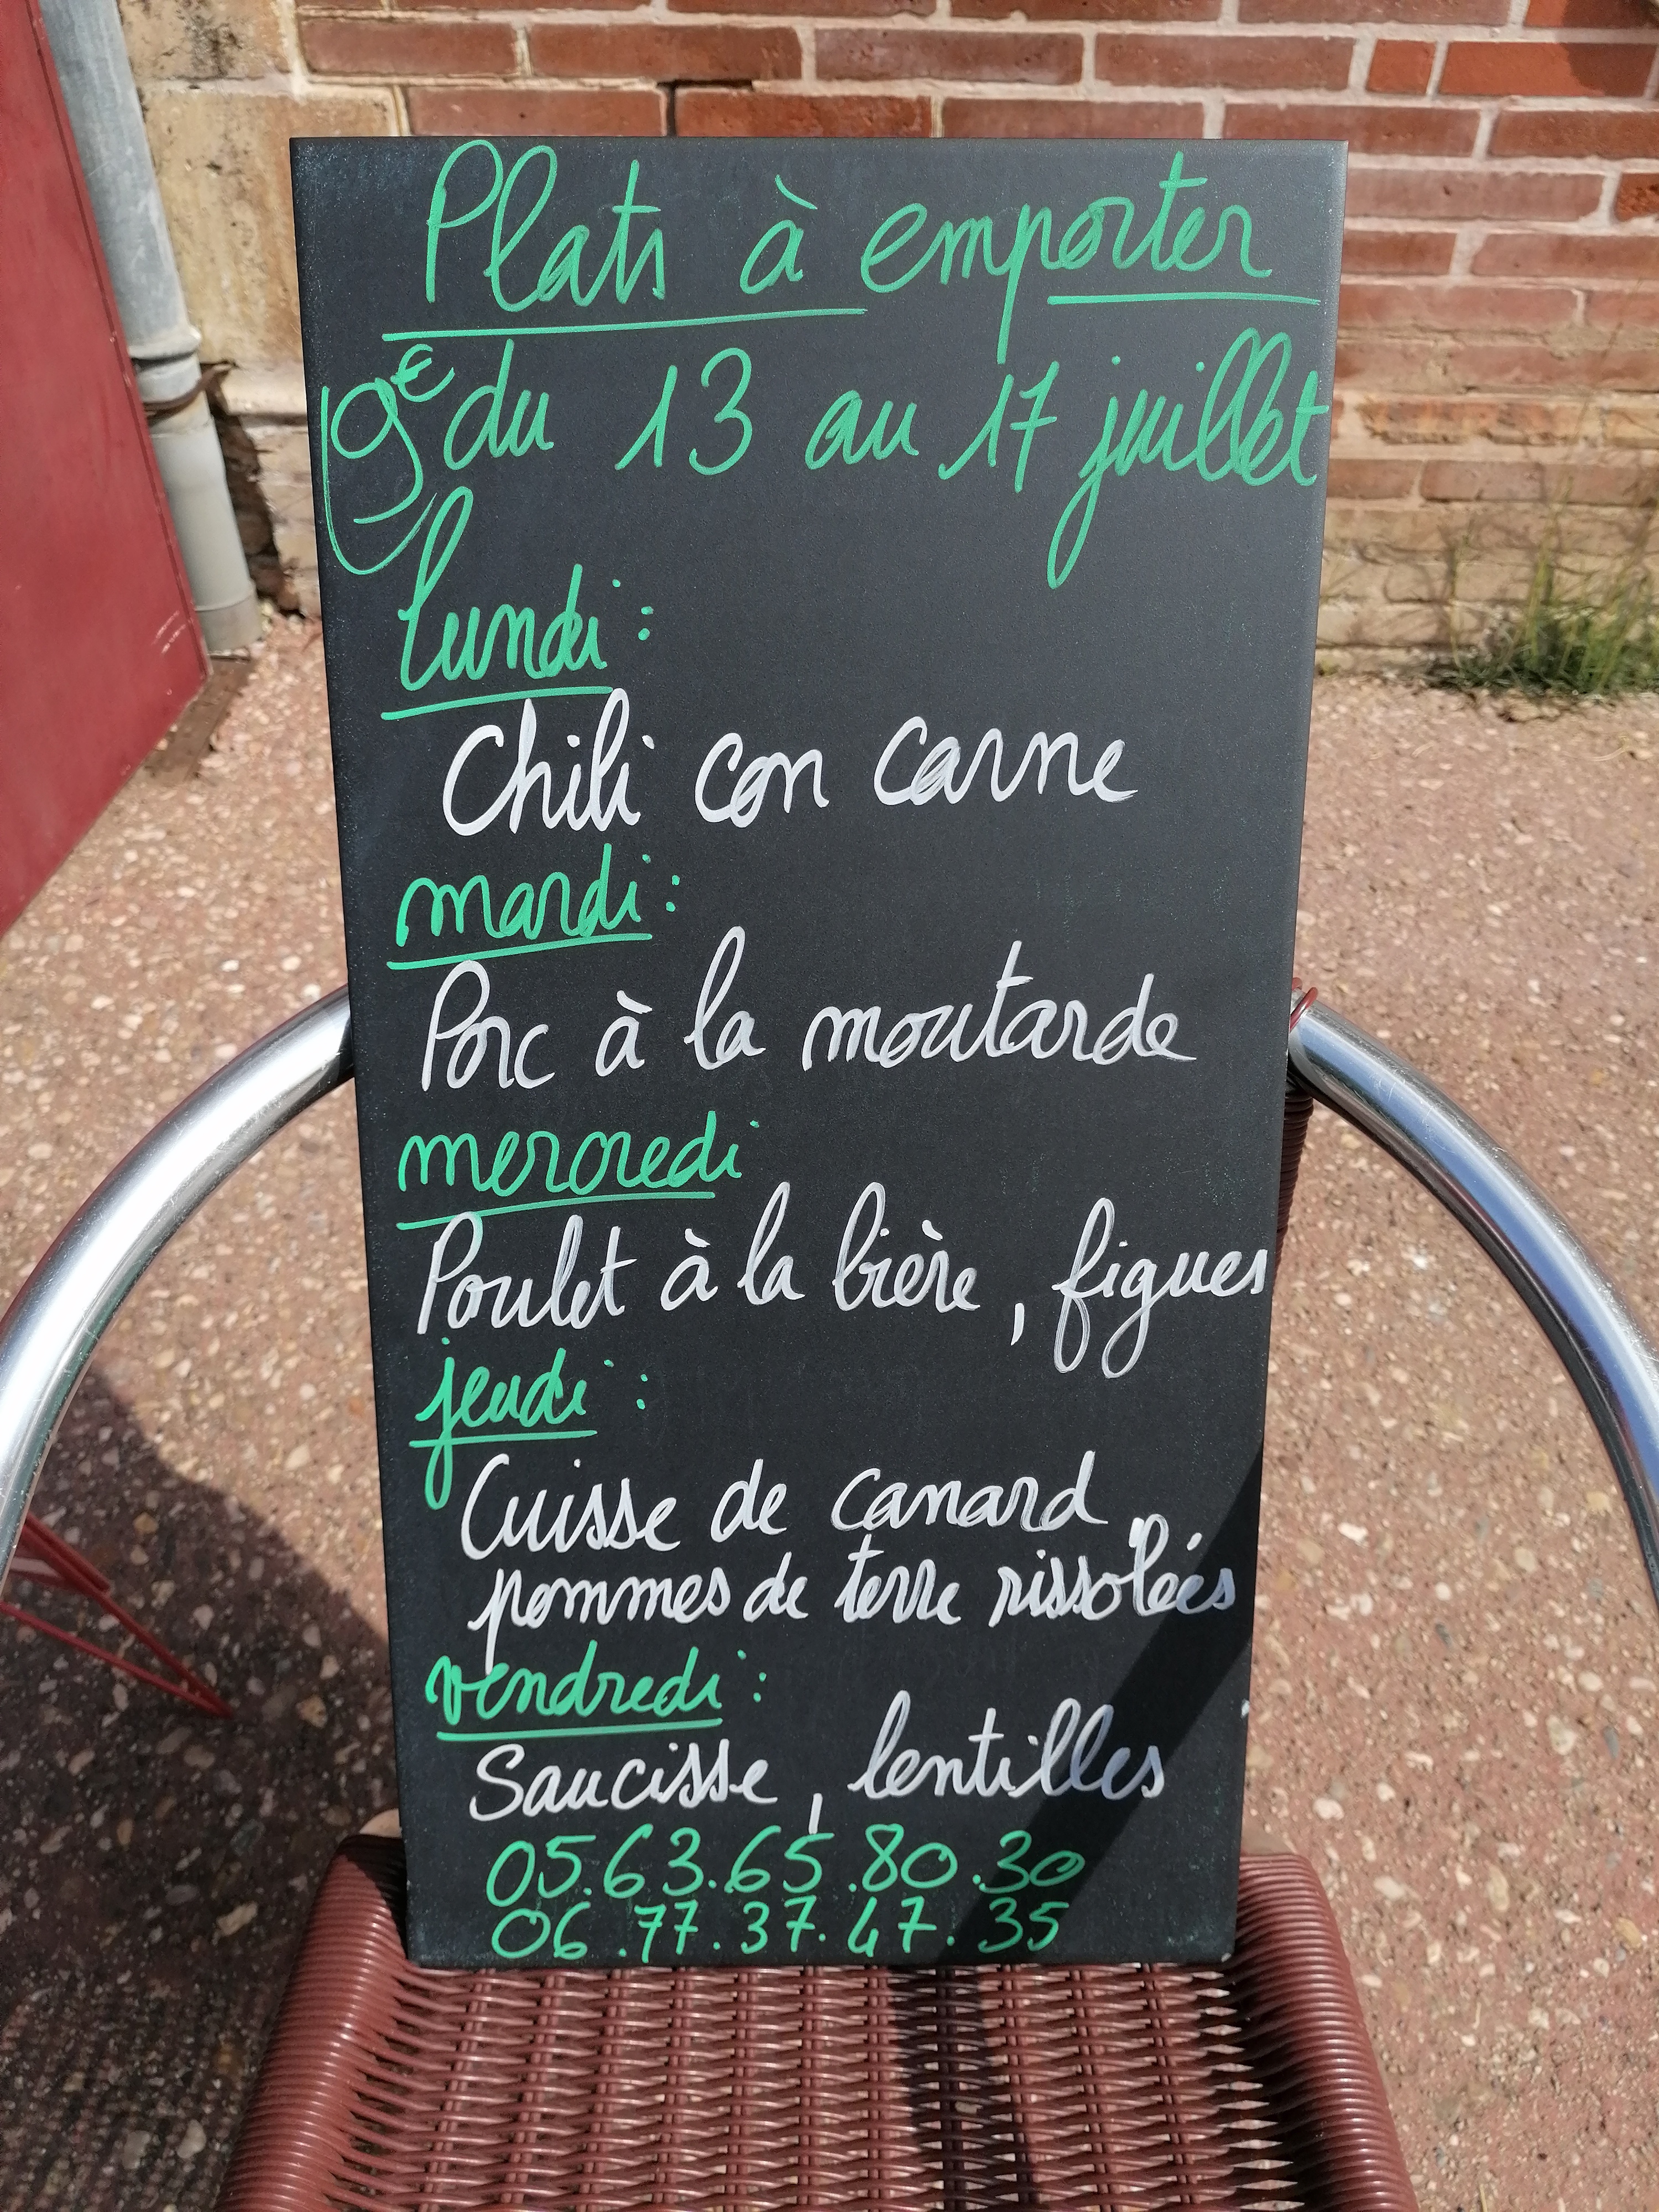 Plats à emporter
9€ du 13 au 17 juillet
lundi :
Chili con carne
mardi :
Porc à la moutarde
mercredi
Poulet à la bière, figues
jeudi :
Cuisse de canard
pommes de terre rissolées
vendredi :
Saucisse, lentilles
05.63.65.80.30
06.77.37.47.35